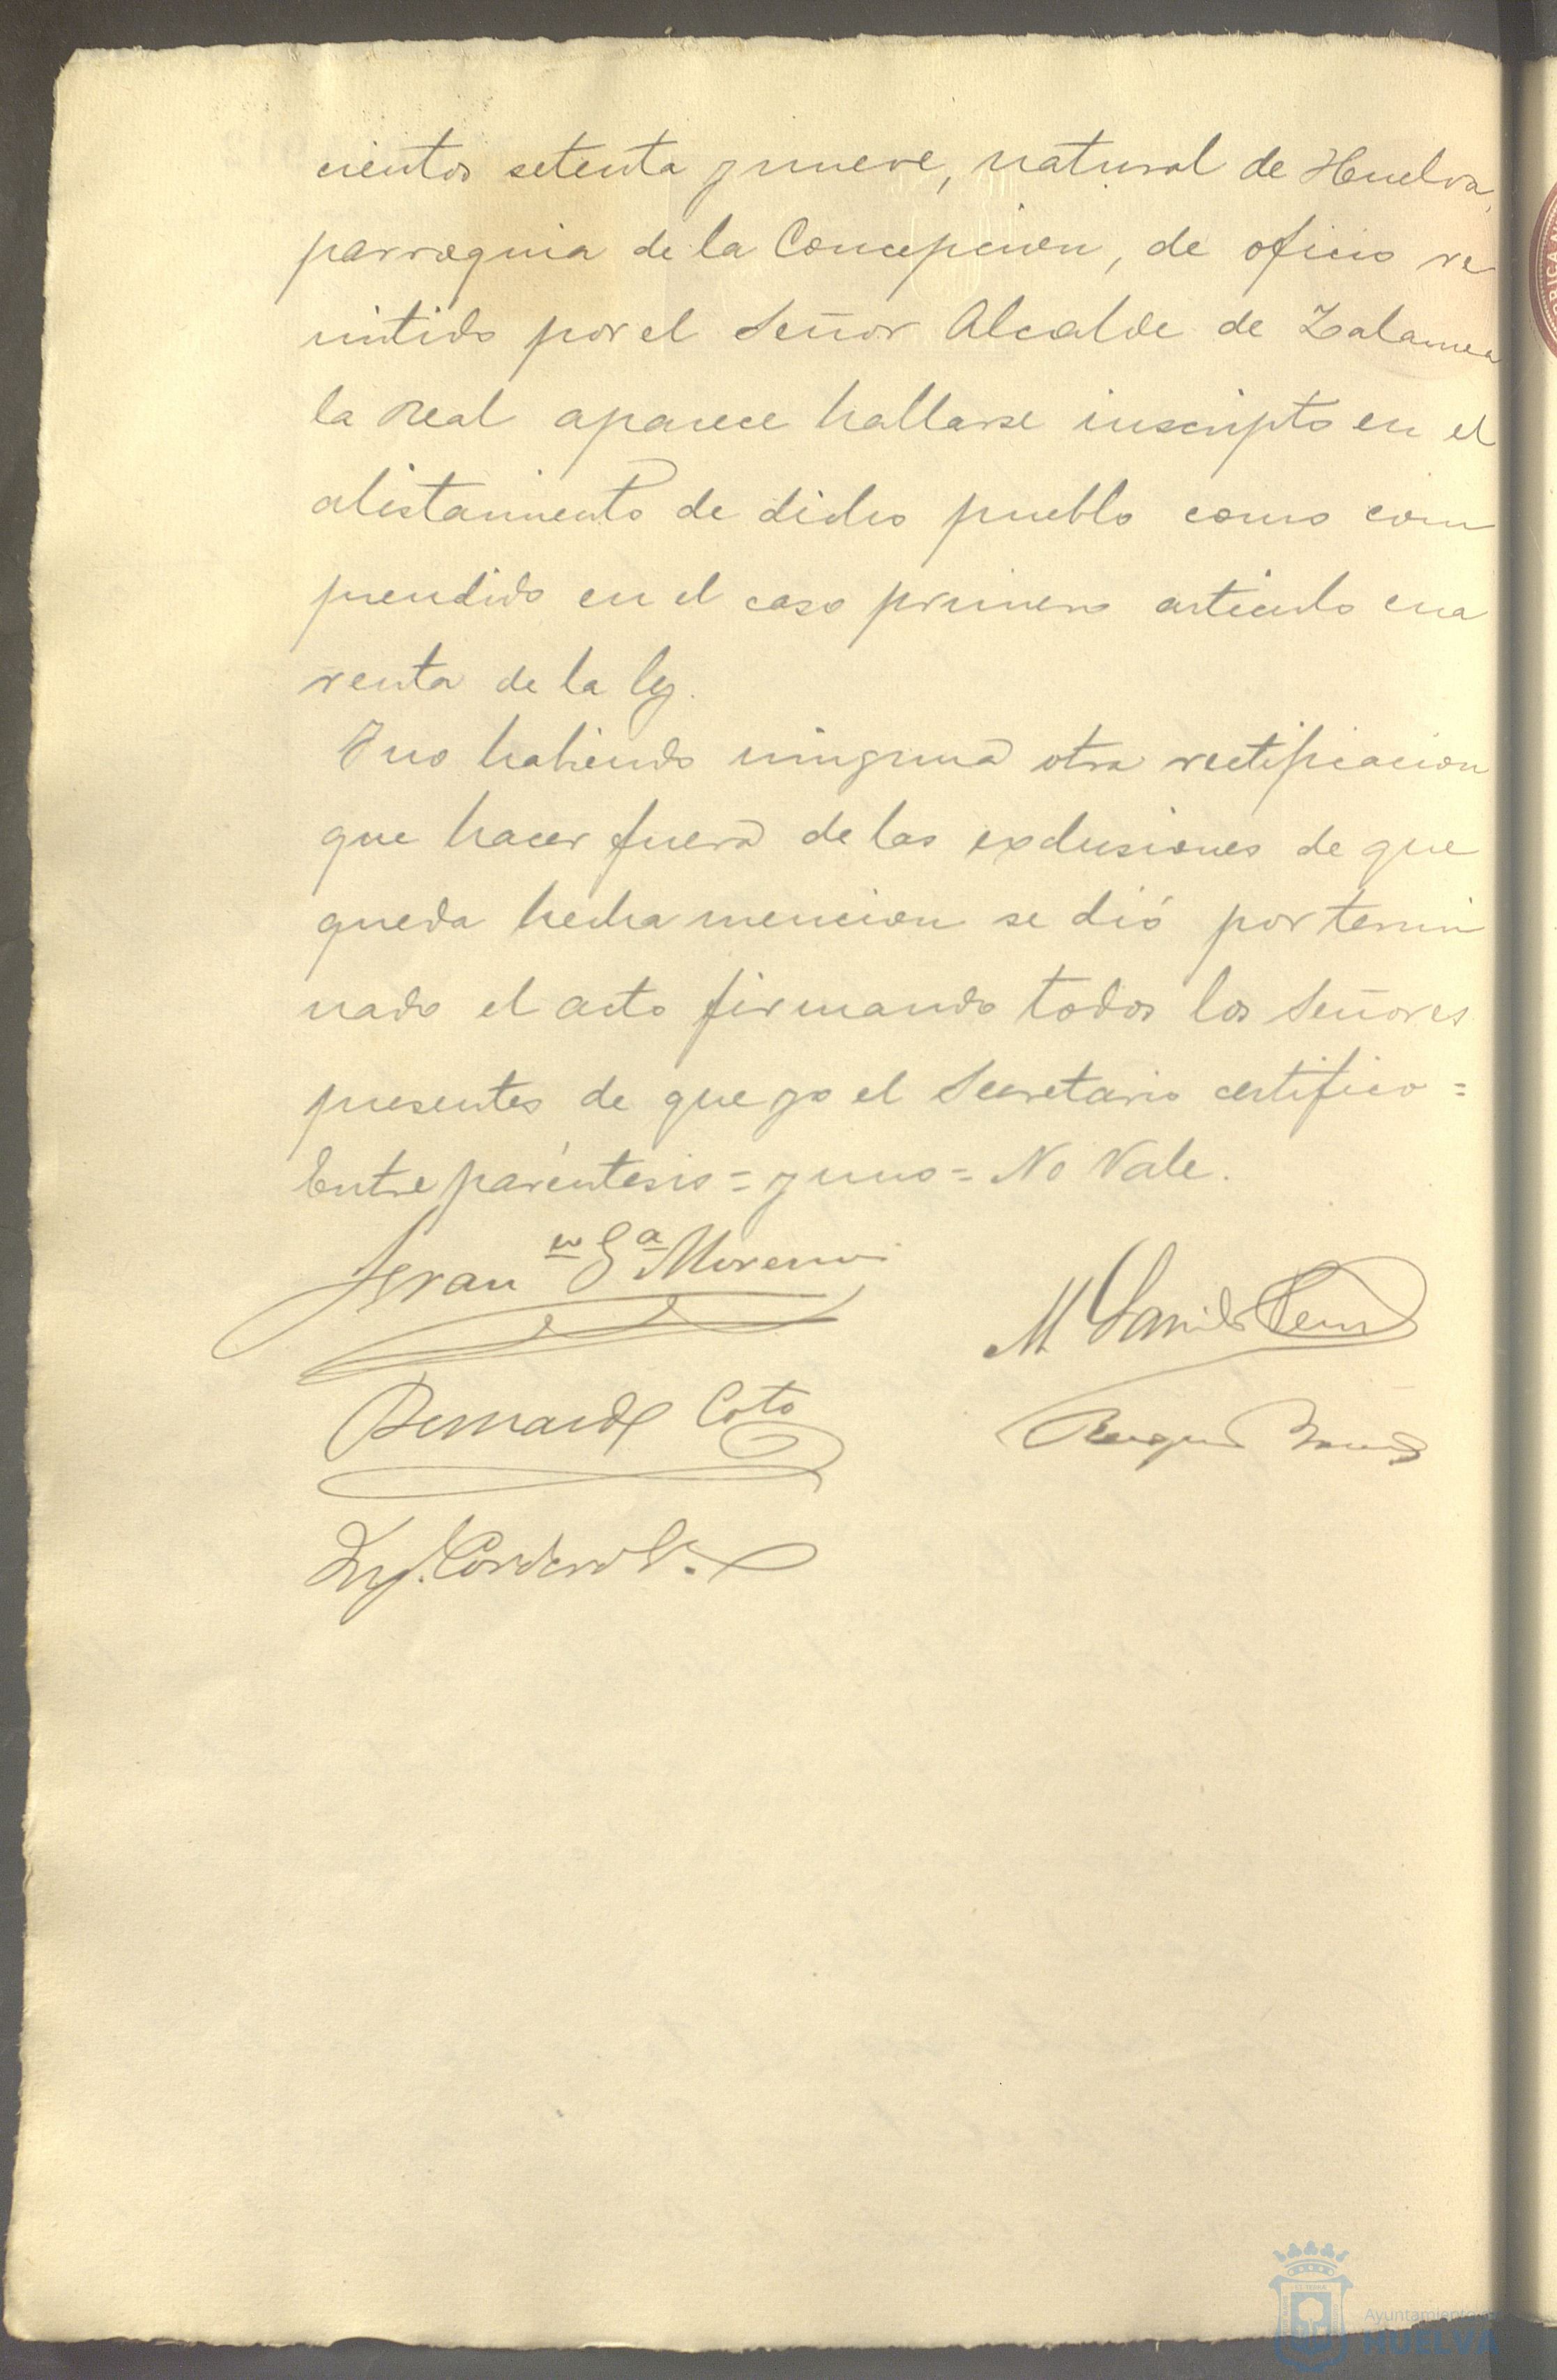 cientos setenta y nueve, natural de Huelva,
parroquia de la Concepcion, de oficio re
mitido por el Señor Alcalde de Zalamea
la Real aparece hallarse inscripto en el
alistamiento de dicho pueblo como com
prendido en el caso primero articulo cua
renta de la ley.
Y no habiendo ninguna otra rectificacion
que hacer fuera de las exclusiones de que
queda hecha mencion se dió por termi
nado el acto firmando todos los Señores
presentes de que yo el Secretario certifico =
Entre paréntesis = y uno = No Vale.
Fran.co G.a Moreno
M
Bernardo Coto
Cordero
Ayuntamiento
HUELVA